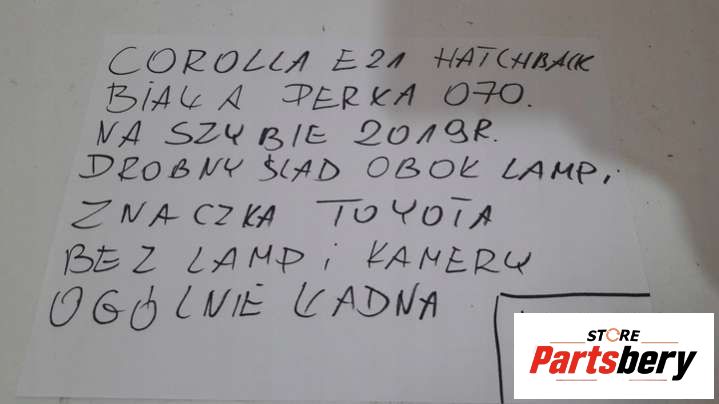 COROLLA E21 HATCHBACK
BIAŁA PERŁA 070.
NA SZYBIE 2019R.
DROBNY ŚLAD OBOK LAMP i
ZNACZKA TOYOTA
BEZ LAMP i KAMERY
OGÓLNIE ŁADNA
STORE
Partsbery